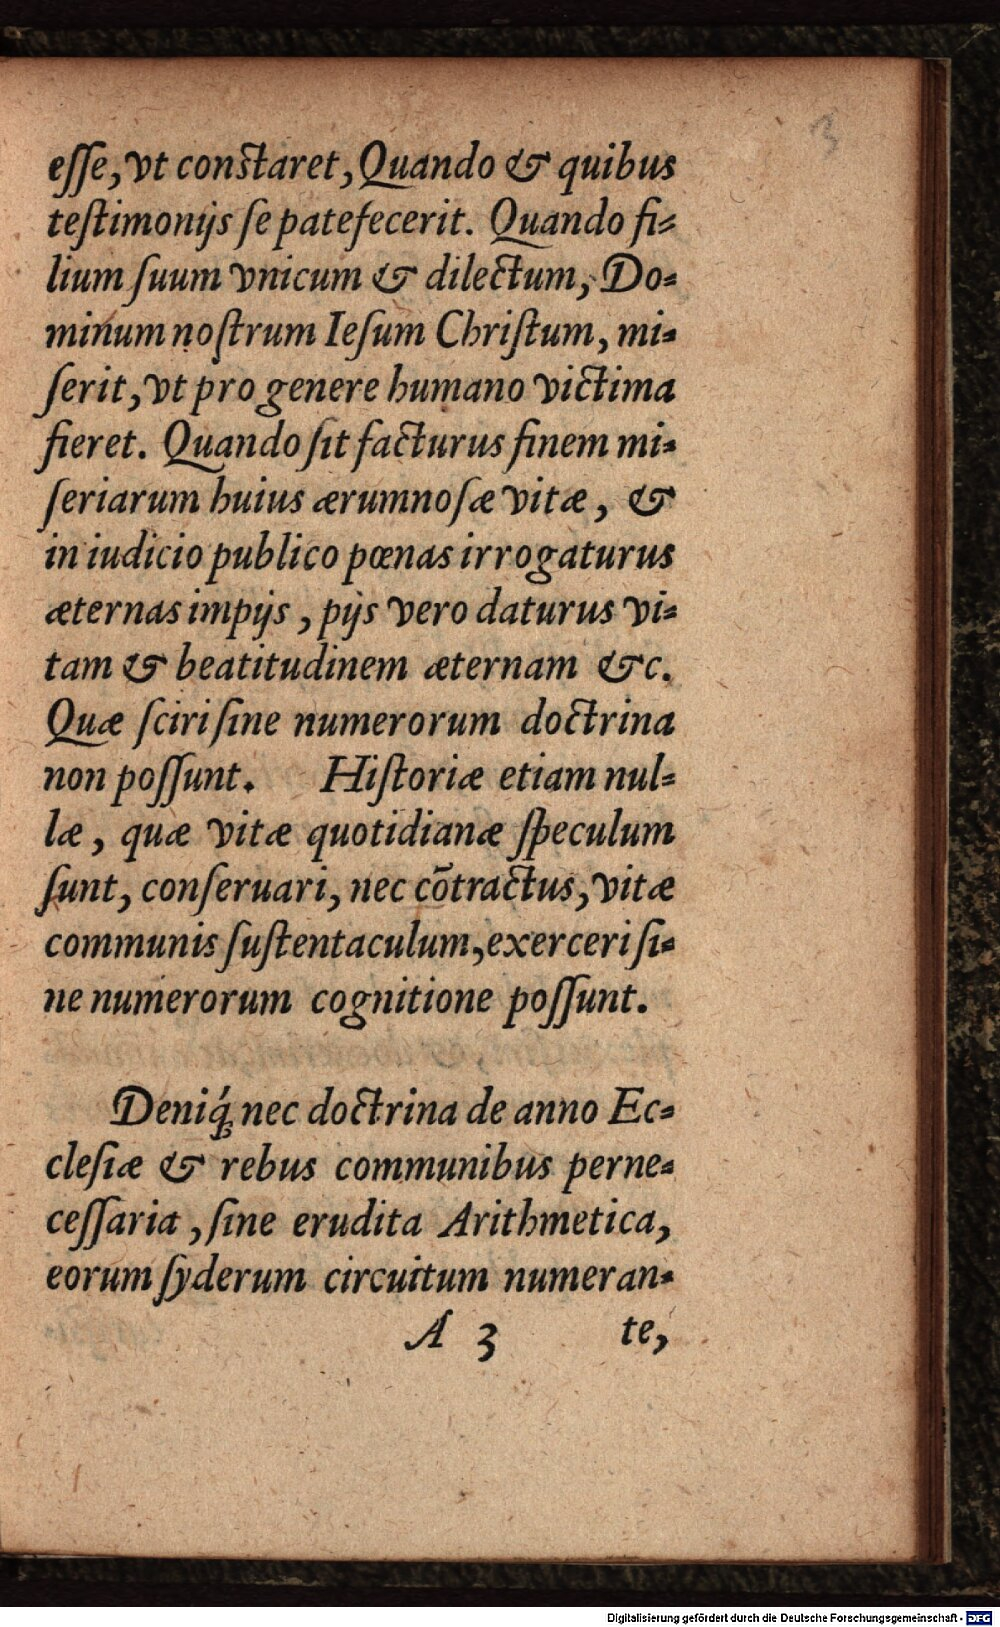 3
eſſe, vt conſtaret, Quando & quibus
teſtimonijs ſe patefecerit. Quando fi-
lium ſuum vnicum & dilectum, Do-
minum noſtrum Ieſum Chriſtum, mi-
ſerit, vt pro genere humano victima
fieret. Quando ſit facturus finem mi-
ſeriarum huius ærumnoſæ vitæ, &
in iudicio publico pœnas irrogaturus
æternas impijs, pijs vero daturus vi-
tam & beatitudinem æternam &c.
Quæ ſciri ſine numerorum doctrina
non poſſunt. Hiſtoriæ etiam nul-
læ, quæ vitæ quotidianæ ſpeculum
ſunt, conſeruari, nec cõtractus, vitæ
communis ſuſtentaculum, exerceri ſi-
ne numerorum cognitione poſſunt.
Deniq́; nec doctrina de anno Ec-
cleſiæ & rebus communibus perne-
ceſſaria, ſine erudita Arithmetica,
eorum ſyderum circuitum numeran-
A 3 te,
Digitalisierung gefördert durch die Deutsche Forschungsgemeinschaft - DFG